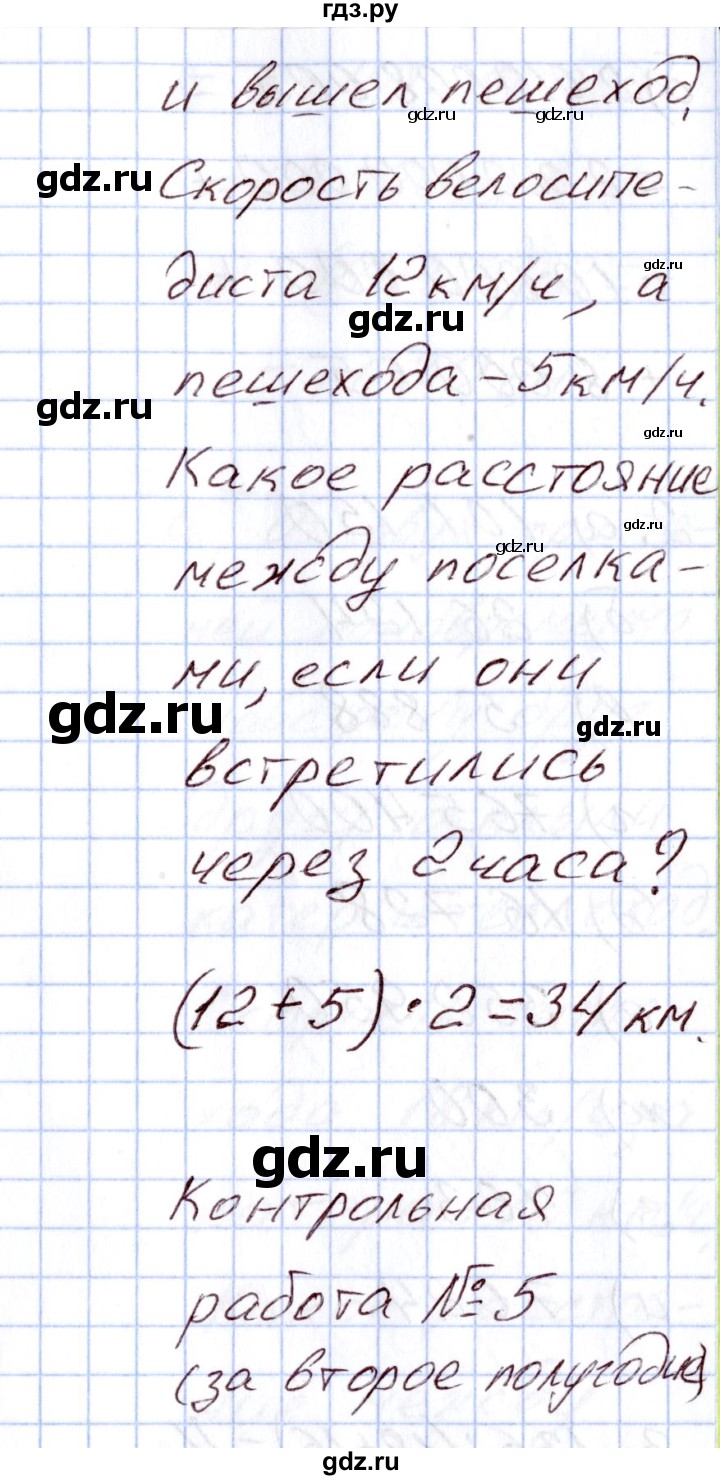 гдз.ру
и вышел пешеход.
gdz.ru gdz.ru
gdz.ru
Скорость велосипе-
gdz.ru
диста 12 км/ч, а
gdz.ru
пешехода - 5 км/ч.
gdz.ru
gdz.ru
Какое расстояние
gdz.ru
gdz.ru
между поселка-
ми, если они
gdz.ru
gdz.ru
встретились
через 2 часа?
(12 + 5) · 2 = 34 км.
gdz.ru
Контрольная
работа № 5
(за второе полугодие)
gdz.ru